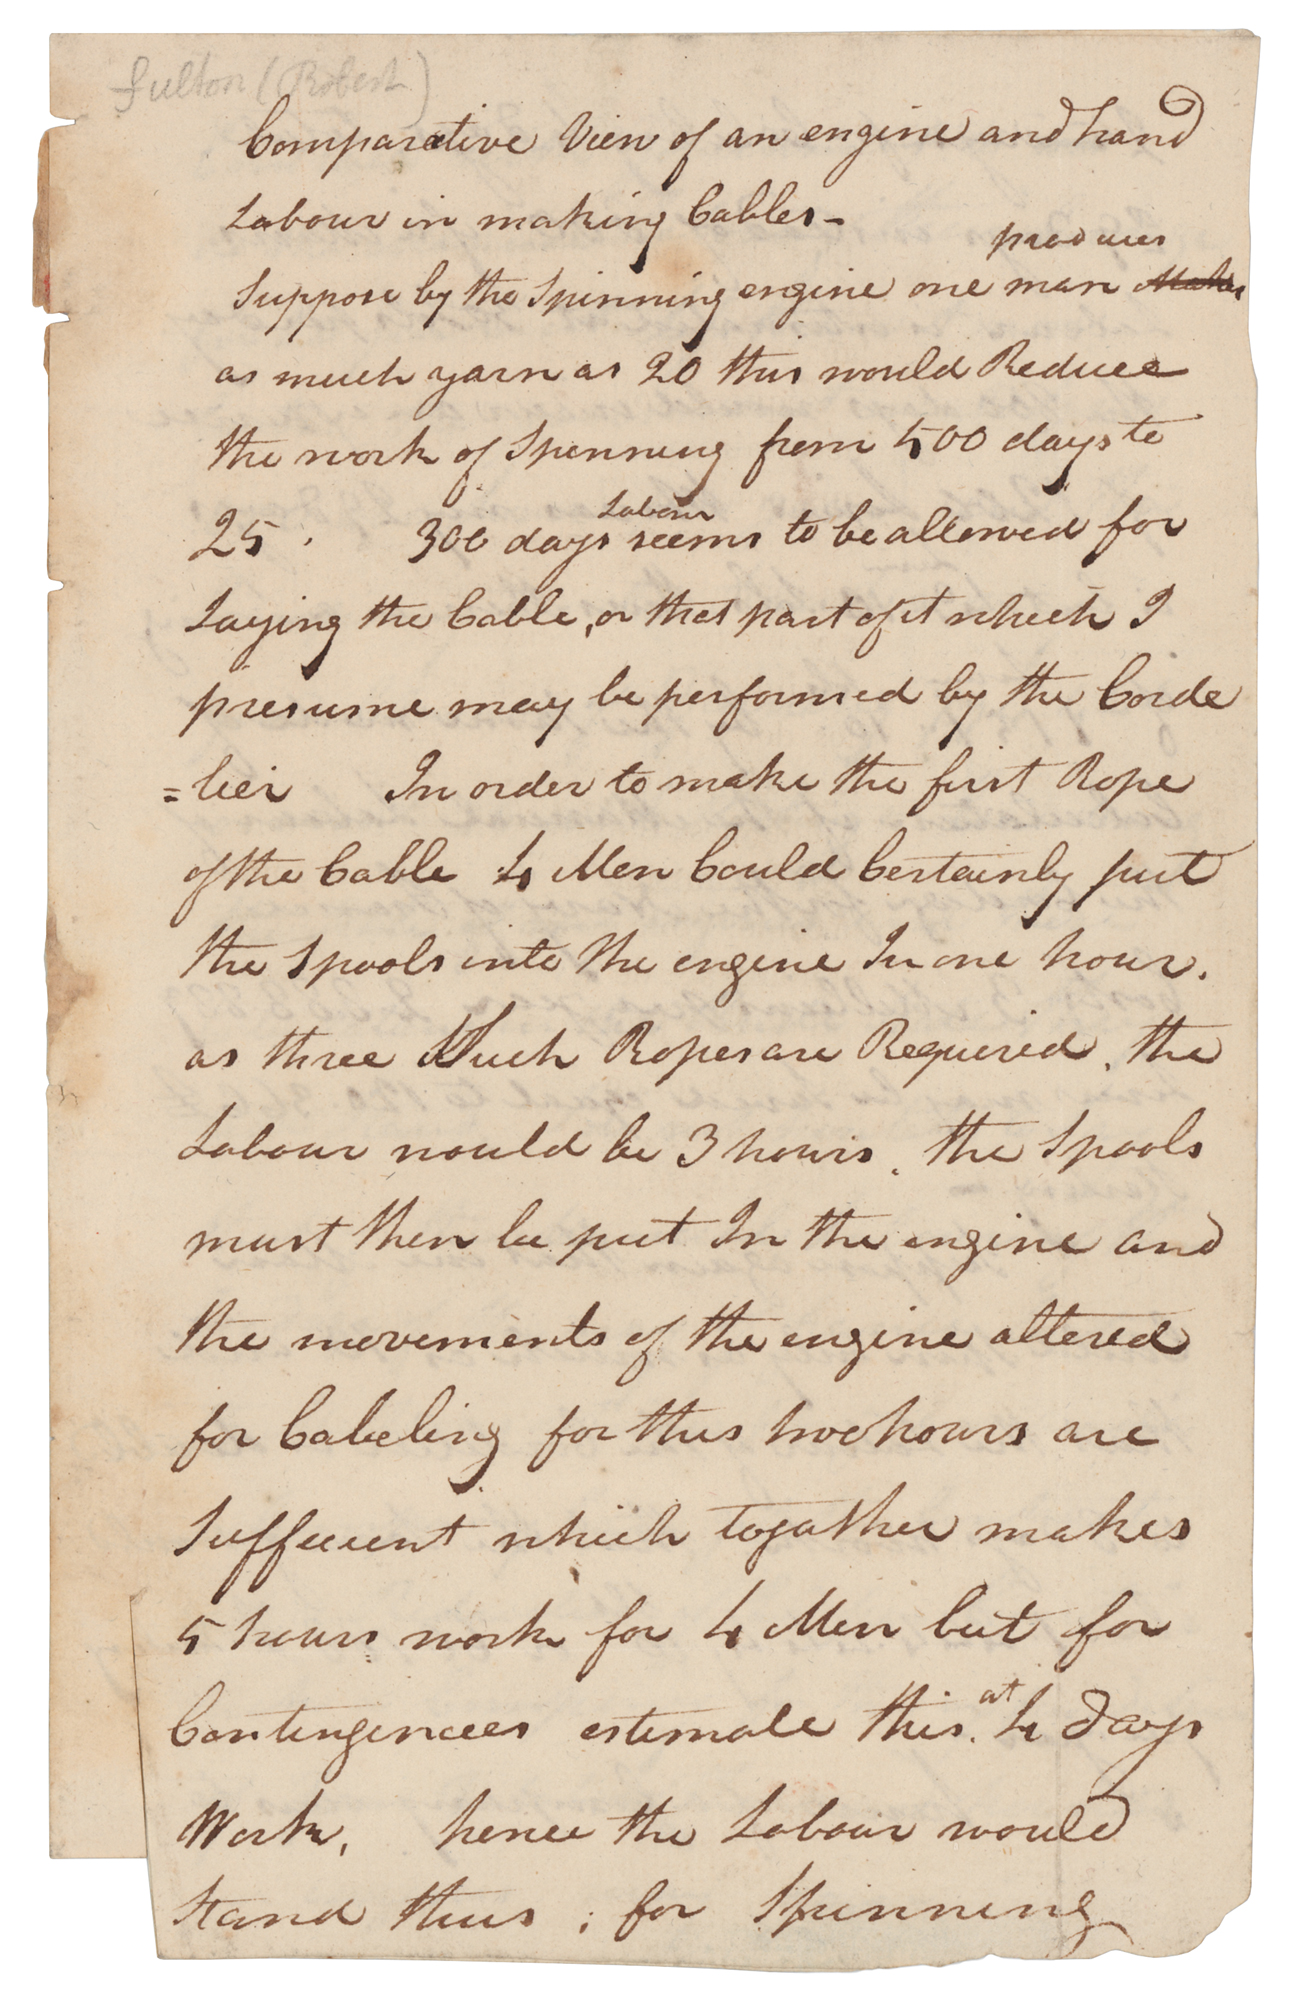 Fulton (Robert)
Comparative View of an engine and hand
Labour in making Cables -
produces
Suppose by the Spinning engine one man Makes
as much yarn as 20 this would Reduce
the work of Spinning from 500 days to
25. 300 days Labour seems to be allowed for
Laying the Cable, or that part of it which I
presume may be performed by the Corde
=lier In order to make the first Rope
of the Cable 4 Men Could Certainly put
the Spools into the engine In one hour.
as three Such Ropes are Required, the
Labour would be 3 hours, the Spools
must then be put In the engine and
the movements of the engine altered
for Cabeling for this two hours are
Sufficient which togather makes
5 hours work for 4 Men but for
Contingences estimate this at 4 days
Work, hence the Labour would
Stand thus; for Spinning